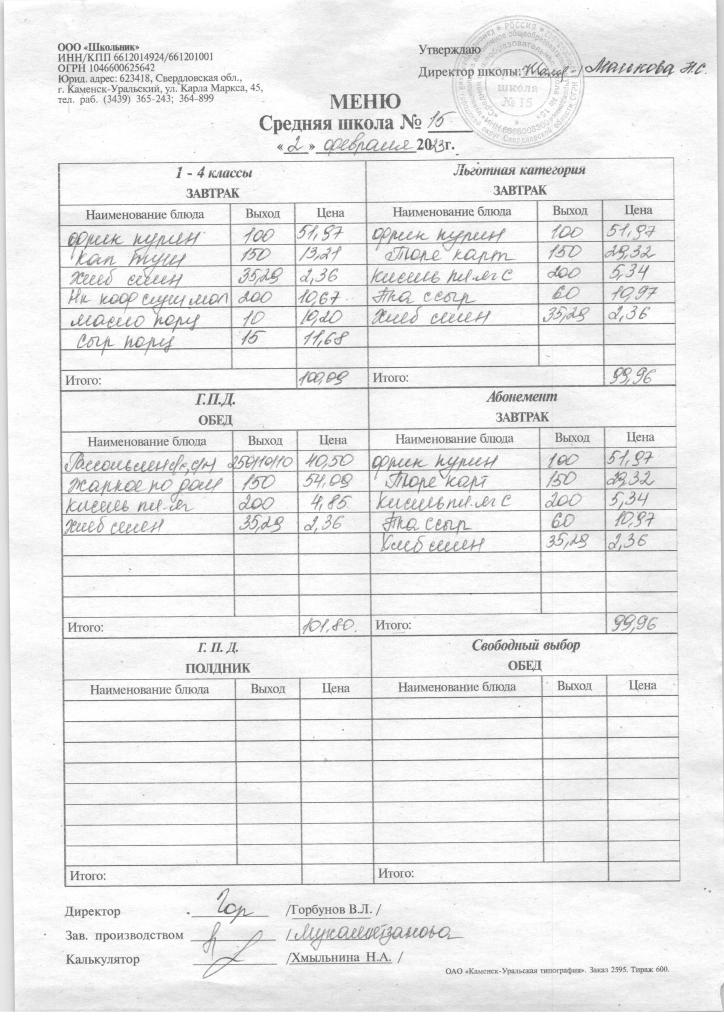 ООО «Школьник»
ИНН/КПП 6612014924/661201001
ОГРН 1046600625642
Юрид. адрес: 623418, Свердловская обл.,
г. Каменск-Уральский, ул. Карла Маркса, 45,
тел. раб. (3439) 365-243; 364-899
Утверждаю
Директор школы:
РОССИЯ
школа
№ 15
МЕНЮ
Средняя школа № 15
« 2 » февраля 2023г.
1 - 4 классы
ЗАВТРАК
Наименование блюда Выход Цена
фрик курин 100 51,97
кап туш 150 13,21
Хлеб смен 35,29 2,36
200 10,67
масло порц 10 10,20
Сыр порц 15 11,68
Итого: 100,09
Льготная категория
ЗАВТРАК
Наименование блюда Выход Цена
фрик курин 100 51,97
Пюре карт 150 29,32
кисель пл.яг С 200 5,34
сыр 60 10,97
Хлеб смен 35,29 2,36
Итого: 99,96
Г.П.Д.
ОБЕД
Наименование блюда Выход Цена
250/10/10 40,50
жаркое по дом 150 54,09
кисель пл.яг 200 4,85
Хлеб смен 35,29 2,36
Итого: 101,80
Абонемент
ЗАВТРАК
Наименование блюда Выход Цена
фрик курин 100 51,97
Пюре карт 150 29,32
Кисель пл.яг С 200 5,34
сыр 60 10,97
Хлеб смен 35,29 2,36
Итого: 99,96
Г. П. Д.
ПОЛДНИК
Наименование блюда Выход Цена
Итого:
Свободный выбор
ОБЕД
Наименование блюда Выход Цена
Итого:
Директор /Горбунов В.Л. /
Зав. производством /
Калькулятор /Хмыльнина Н.А. /
ОАО «Каменск-Уральская типография». Заказ 2595. Тираж 600.